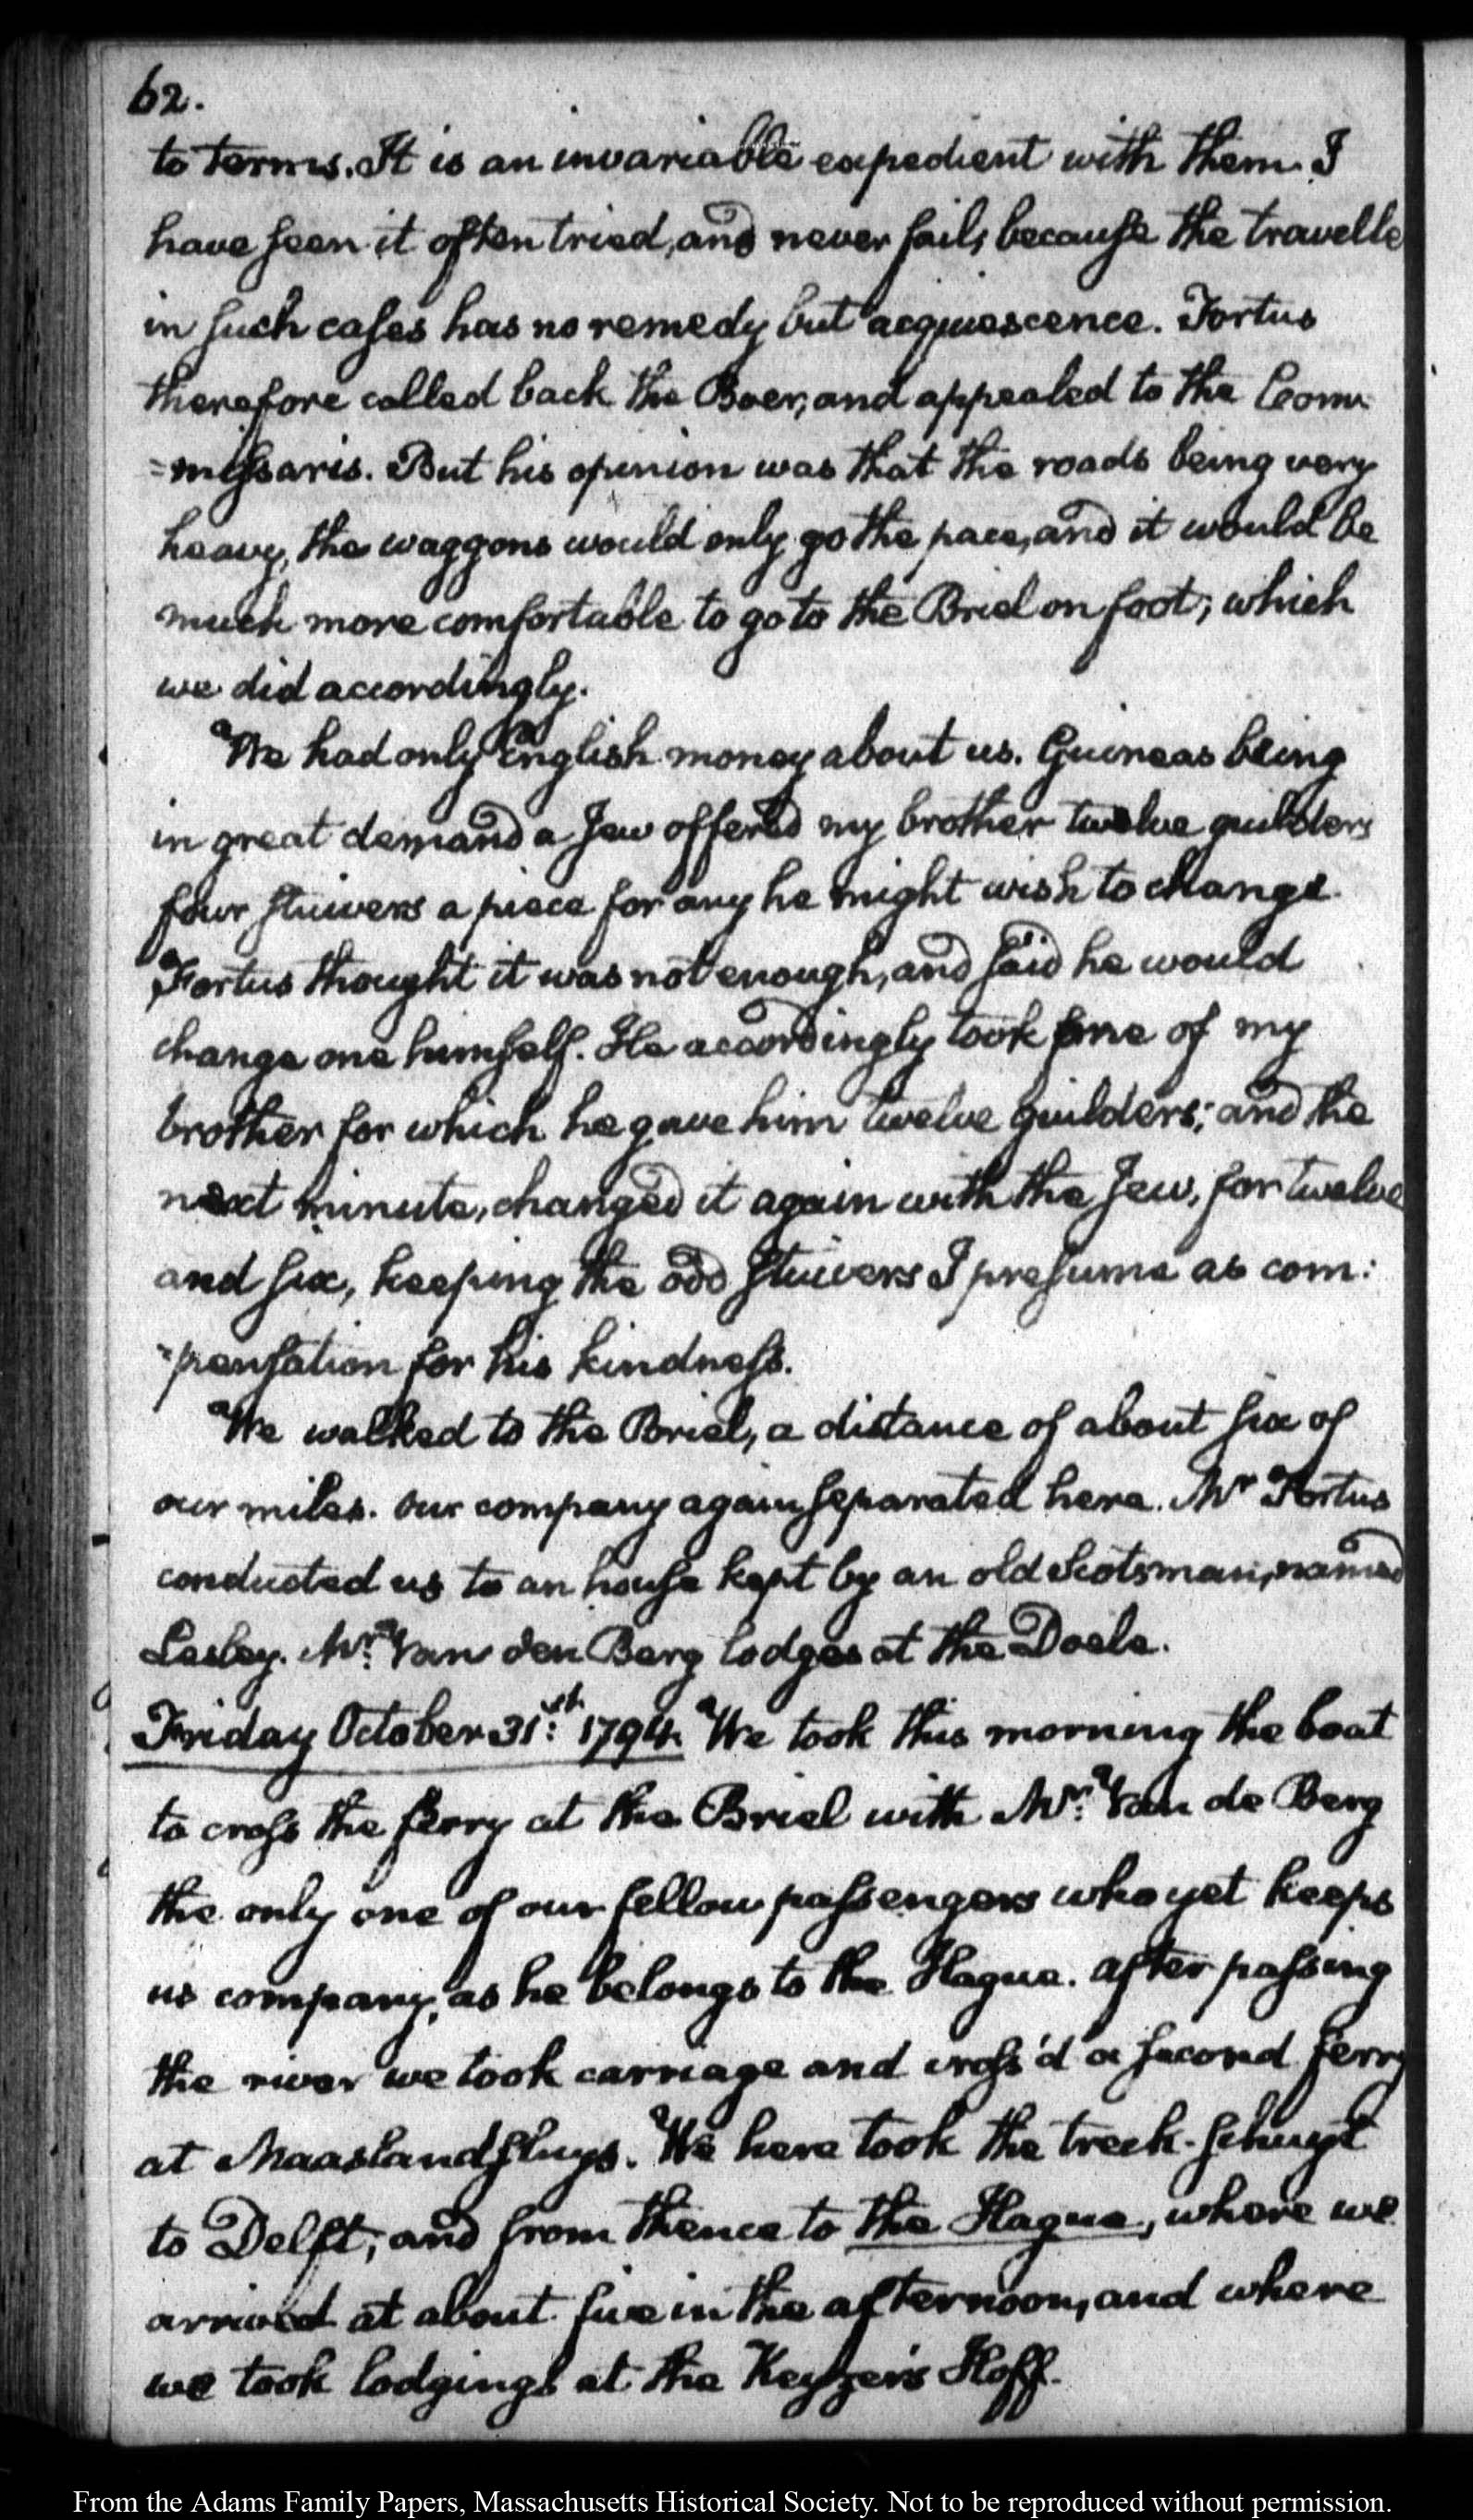 62.
to terms. It is an invariable expedient with them. I
have seen it often tried, and never fails, because the travelle
in such cases has no remedy but acquiescence. Fortus
therefore called back the Boer, and appealed to the Com
=missaris. But his opinion was that the roads being very
heavy, the waggons would only go the pace, and it would be
much more comfortable to go to the Briel on foot; which
we did accordingly.
We had only English money about us. Guineas being
in great demand a Jew offered my brother twelve guilders
four stuivers a piece for any he might wish to change.
Fortus thought it was not enough, and said he would
change one himself. He accordingly took one of my
brother for which he gave him twelve guilders; and the
next minute, changed it again with the Jew, for twelve
and six, keeping the odd stuivers I presume as com:
-pensation for his kindness.
We walked to the Briel, a distance of about six of
our miles. Our company again separated here. Mr Fortus
conducted us to an house kept by an old Scotsman, named
Lesley. Mr: Van den Berg lodges at the Doele.
Friday October 31:st 1794. We took this morning the boat
to cross the ferry at the Briel with Mr: Van de Berg
the only one of our fellow passengers who yet keeps
us company, as he belongs to the Hague. After passing
the river we took carriage and cross'd a second ferry
at Maaslandsluys. We here took the treck-schuyt
to Delft, and from thence to the Hague, where we
arrived at about five in the afternoon, and where
we took lodgings at the Keyzer's Hoff.
From the Adams Family Papers, Massachusetts Historical Society. Not to be reproduced without permission.